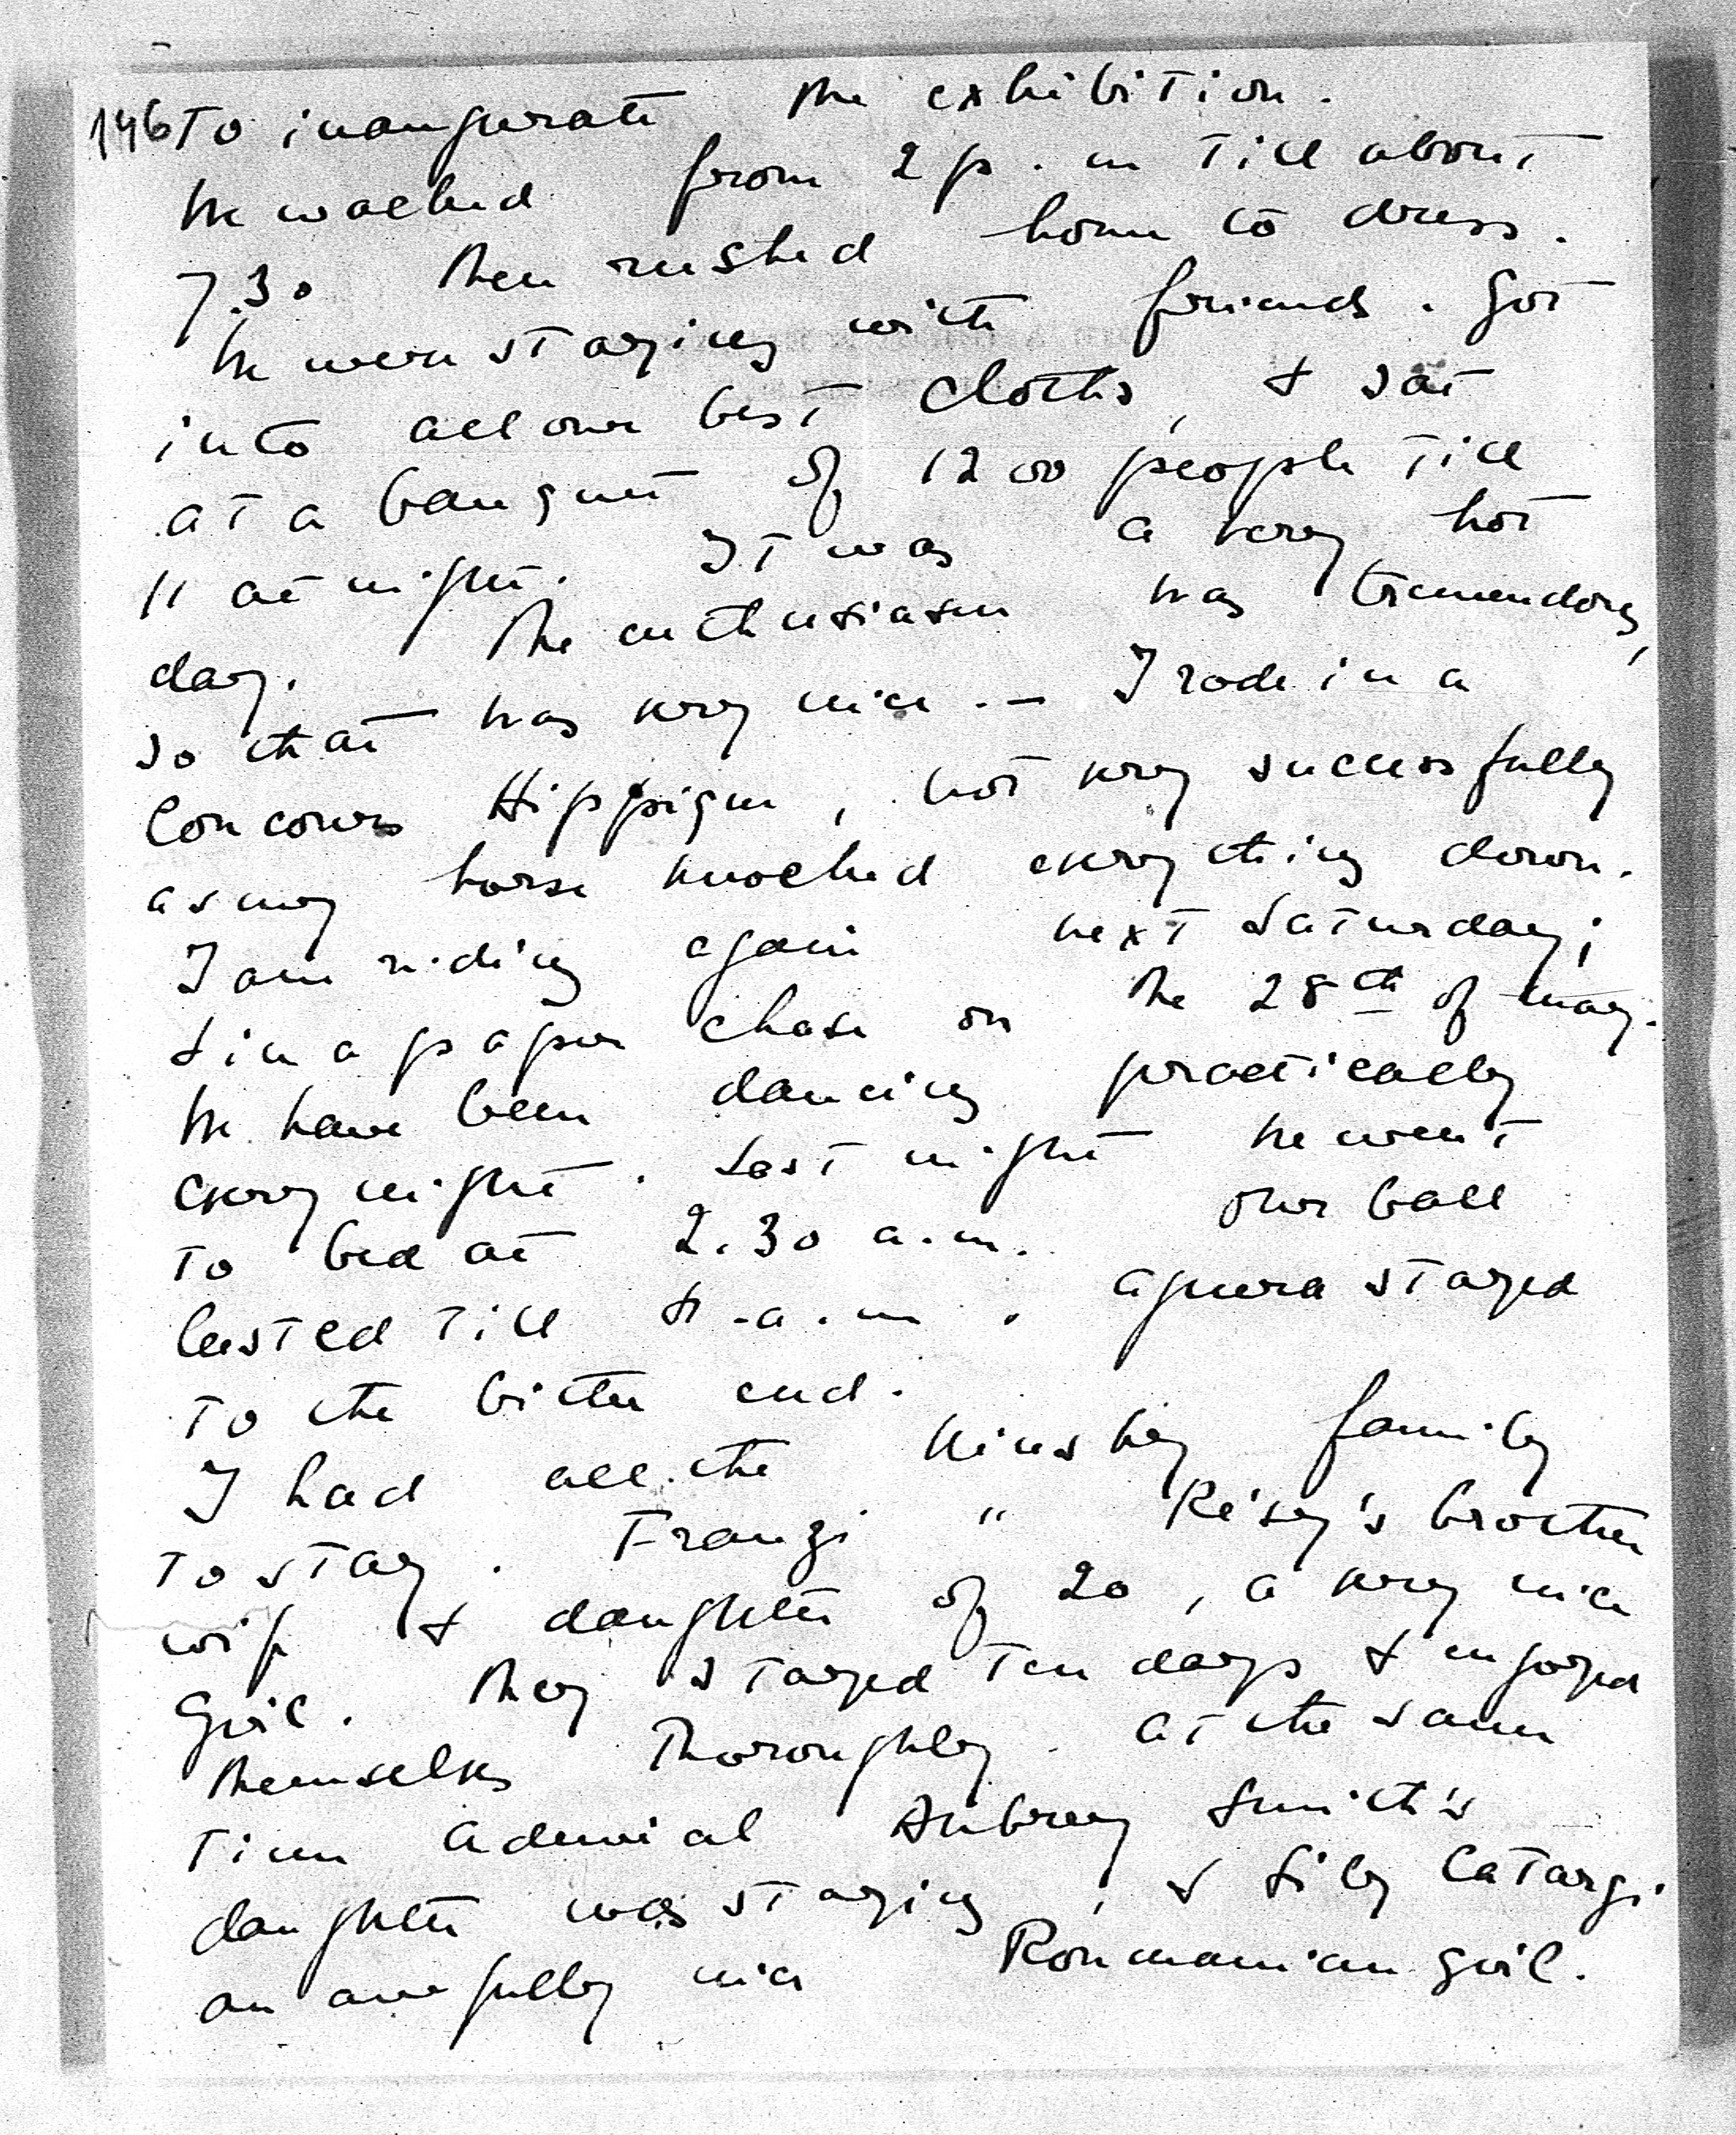 146 To inaugurate the exhibition.
We walked from 2 p.m till about
7.30 then rushed home to dress.
We were staying with friends. Got
into all our best cloths, & sat
at a banquet of 1200 people till
11 at night. It was a very hot
day. The enthusiasm was tremendous,
so that was very nice. — I rode in a
Concours Hippique, not very successfully
as my horse knocked everything down.
I am riding again next Saturday;
& in a paper chase on the 28th of May.
We have been dancing practically
every night. Last night we went
to bed at 2.30 a.m. Our ball
lasted till a.m. stayed
to the bitter end.
I had all the Kinsky family
to stay. Franzi " Résy's brother
wife & daughter of 20, a very nice
girl. They stayed ten days & enjoyed
themselves thoroughly. At the same
time Admiral Aubrey Smith's
daughter was staying, & Lily Catargi.
an awfully nice Roumanian girl.